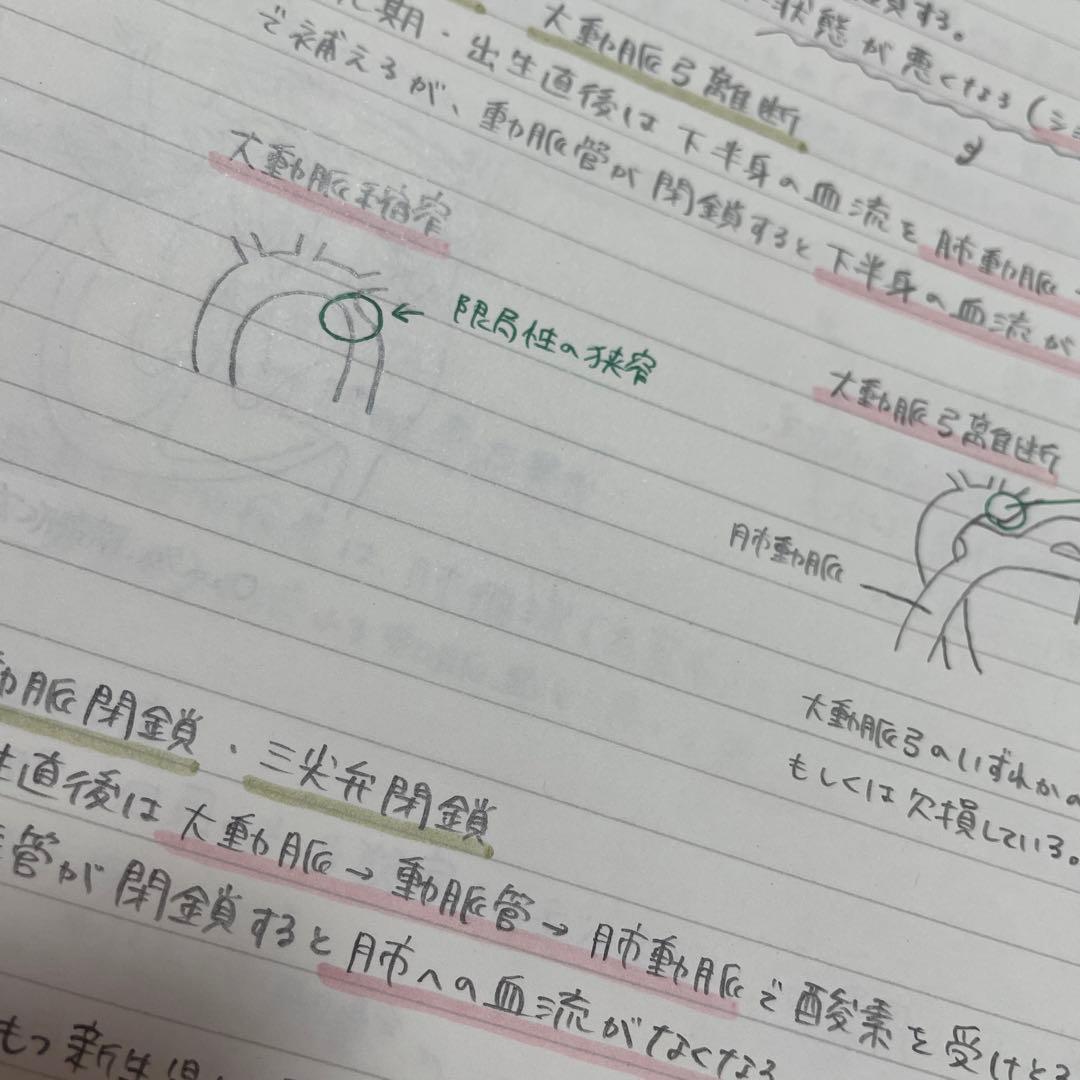 する。
状態が悪くなる(ショ
大動脈弓離断
期・出生直後は下半身の血流を肺動脈
で補えるが、動脈管が閉鎖すると下半身の血流が
大動脈狭窄
← 限局性の狭窄
大動脈弓離断
肺動脈
大動脈弓のいずれかの
もしくは欠損している。
動脈閉鎖・三尖弁閉鎖
生直後は大動脈→動脈管→肺動脈で酸素を受けとる
管が閉鎖すると肺への血流がなくなる
もつ新生児